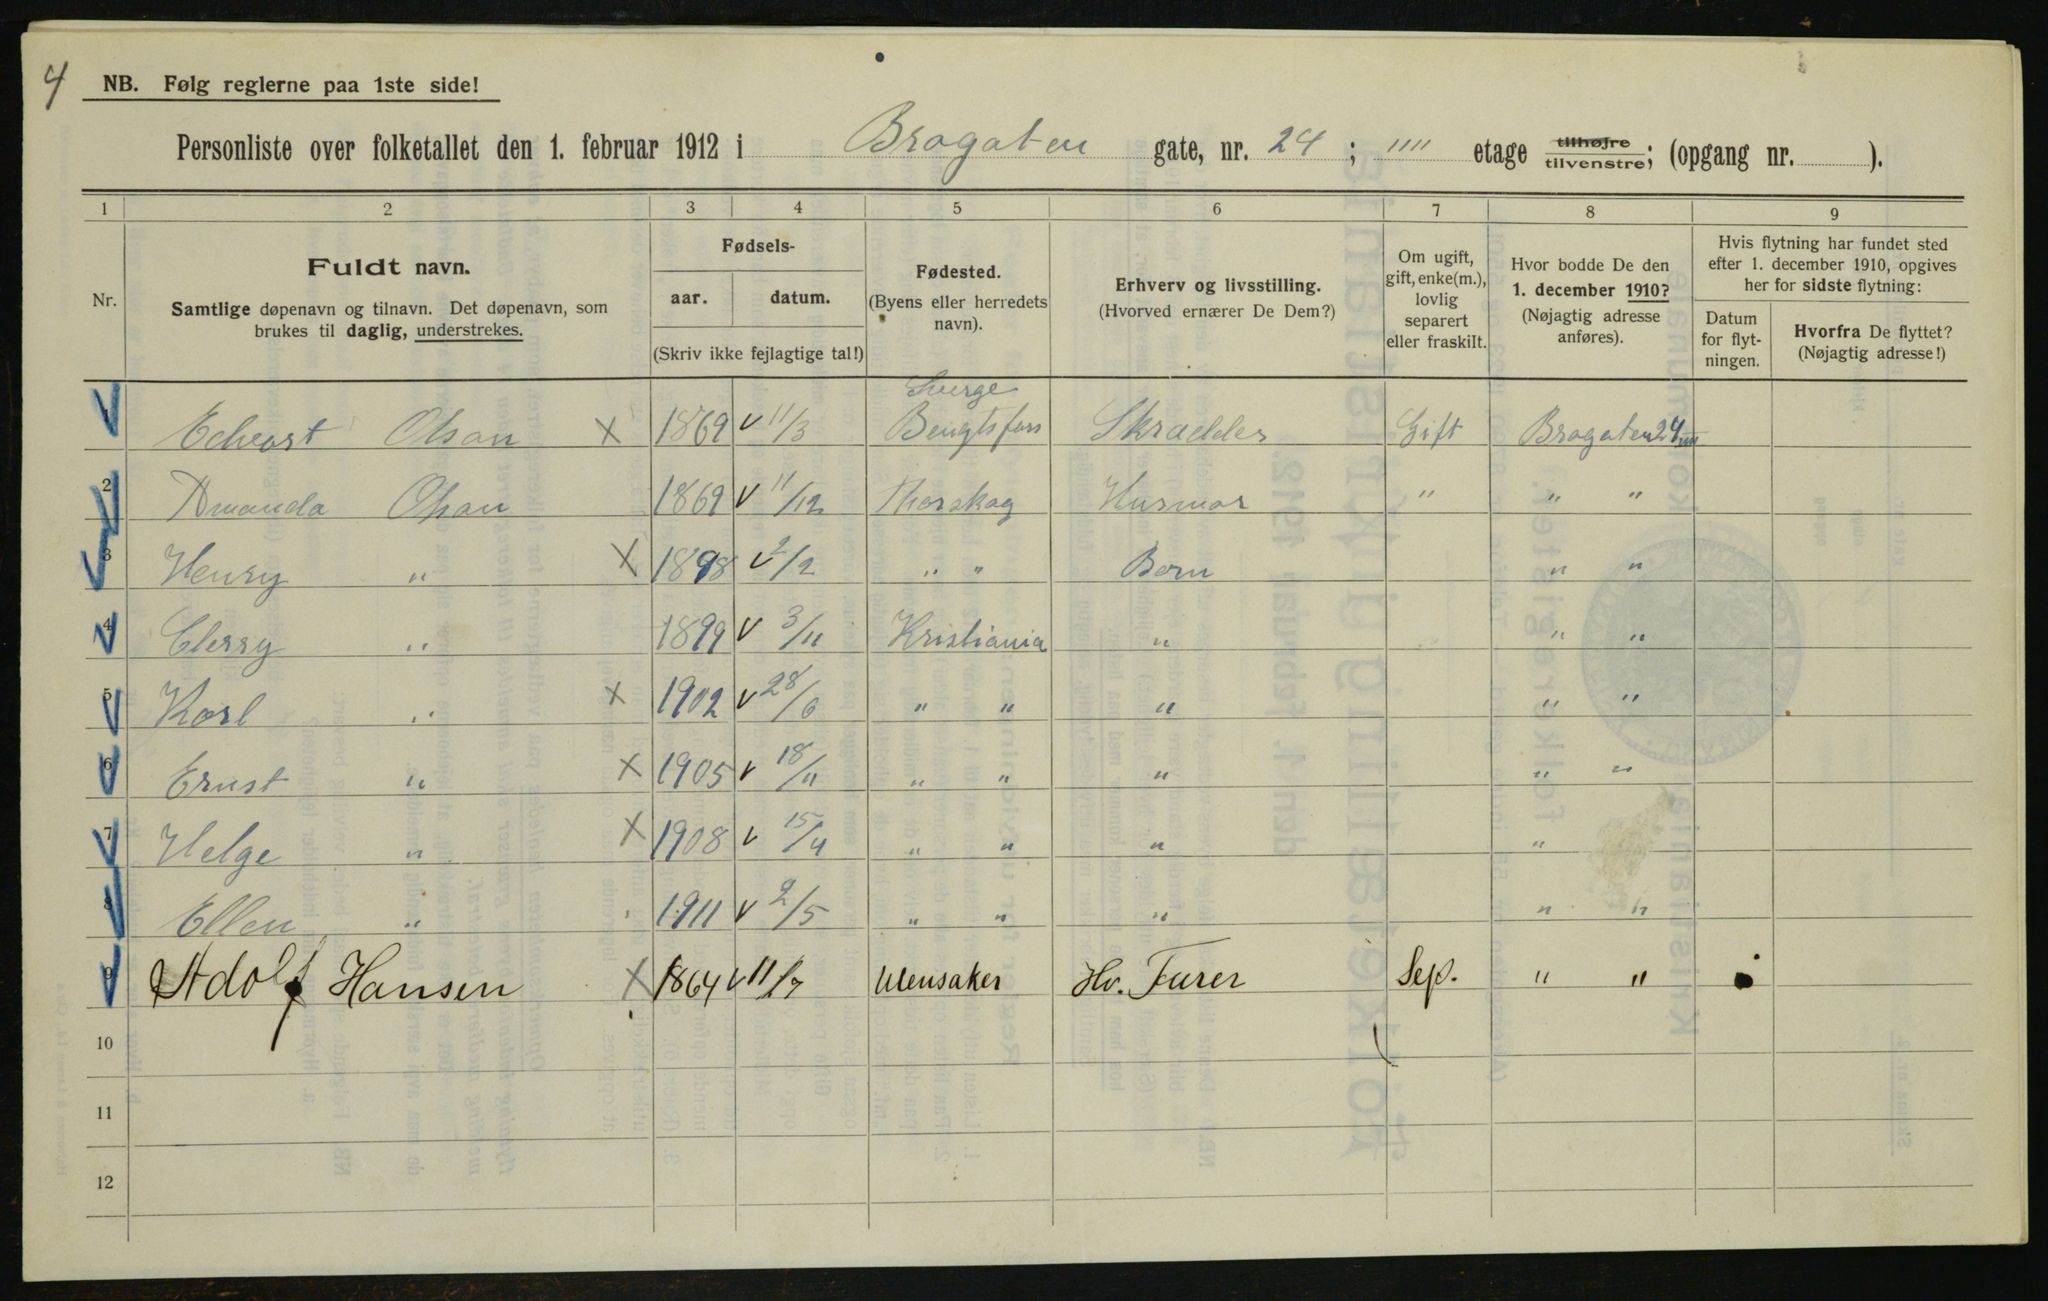 4
NB. Følg reglerne paa 1ste side!
Personliste over folketallet den 1. februar 1912 i Brogaten gate, nr. 24; "" etage tilhøjre tilvenstre; (opgang nr. ).
1 2 3 4 5 6 7 8 9
Nr.
Fuldt navn.
Samtlige døpenavn og tilnavn. Det døpenavn, som
brukes til daglig, understrekes.
Fødsels-
aar. datum.
(Skriv ikke fejlagtige tal!)
Fødested.
(Byens eller herredets
navn).
Erhverv og livsstilling.
(Hvorved ernærer De Dem?)
Om ugift,
gift, enke(m.),
lovlig
separert
eller fraskilt.
Hvor bodde De den
1. december 1910?
(Nøjagtig adresse
anføres).
Hvis flytning har fundet sted
efter 1. december 1910, opgives
her for sidste flytning:
Datum
for flyt-
ningen.
Hvorfra De flyttet?
(Nøjagtig adresse!)
Sverge
1 Edvart Olsan X 1869 v 11/3 Bengtsfors Skrædder Gift Brogaten 24 """
2 Amanda Olsan 1869 v 11/12 Thorskog Husmor " " "
3 Henry " X 1898 v 2/2 " " Born " "
4 Clerry " 1899 v 3/11 Kristiania " " "
5 Karl " X 1902 v 28/6 " " " " "
6 Ernst " X 1905 v 18/11 " " " " "
7 Helge " X 1908 v 15/4 " " " "
8 Ellen " 1911 v 2/5 " " " " "
9 Adolf Hansen X 1864 v 11/7 Ulensaker Hv. Furer Sep. " "
10
11
12